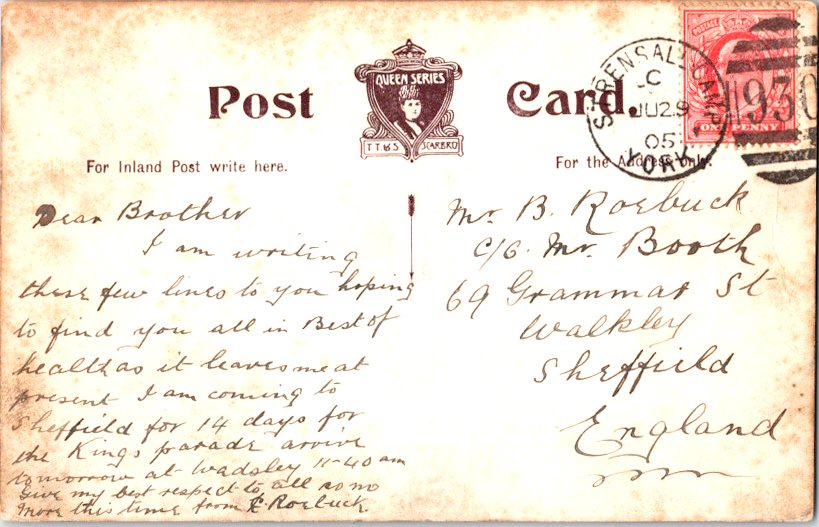 Post Card.
QUEEN SERIES
T T & S SCARBRO
For Inland Post write here.
For the Address only.
STRENSALL CAMP
C
JU 29
05
YORK
POSTAGE
ONE PENNY
930
Dear Brother
I am writing
these few lines to you hoping
to find you all in Best of
health as it leaves me at
present I am coming to
Sheffield for 14 days for
the Kings parade arrive
tomorrow at Wadsley 11-40 am
Give my best respect to all so no
More this time from E Roebuck.
Mr. B. Roebuck
c/o. Mr. Booth
69 Grammar St
Walkley
Sheffield
England